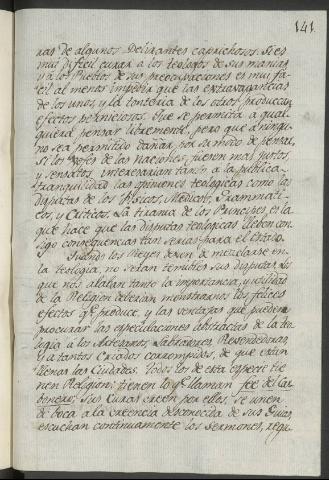 141.
ras de algunos Delirantes caprichosos. Si es
mui dificil curar a los teologos de sus manias,
y a los Pueblos de sus preocupaciones es mui fa-
cil al menos impedir que las extravagancias
de los unos, y la tonteria de los otros produzcan
efectos perniciosos. Que se permita a qual-
quiera pensar libremente, pero que a ningu-
no sea permitido dañar por su modo de pensar.
Si los Gefes de las Naciones fuesen mas justos,
y sensatos, interesarian tanto a la publica
tranquilidad las opiniones teologicas como las
disputas de los Fisicos, Medicos, Grammati-
cos, y Criticos. La tirania de los Principes es la
que hace que las disputas teologicas lleben con-
sigo consequencias tan serias para el estado.
Quando los Reyes dexen de mezclarse en
la teologia, no seran temibles sus disputas. Los
que nos alaban tanto la importancia, y utilidad
de la Religion deberian mostrarnos los felices
efectos qe. produce, y las ventajas que pueden
procurar las especulaciones abstractas de la teo-
logia a los Artesanos, Labradores, Revendedoras,
y a tantos Criados corrompidos, de que estan
llenas las Ciudades. Todos los de esta especie tie-
nen Religion; tienen lo qe. llaman fee del Car-
bonero; sus Curas creen por ellos, se unen
de boca a la creencia desconocida de sus Guias,
escuchan continuamente los Sermones, asis-